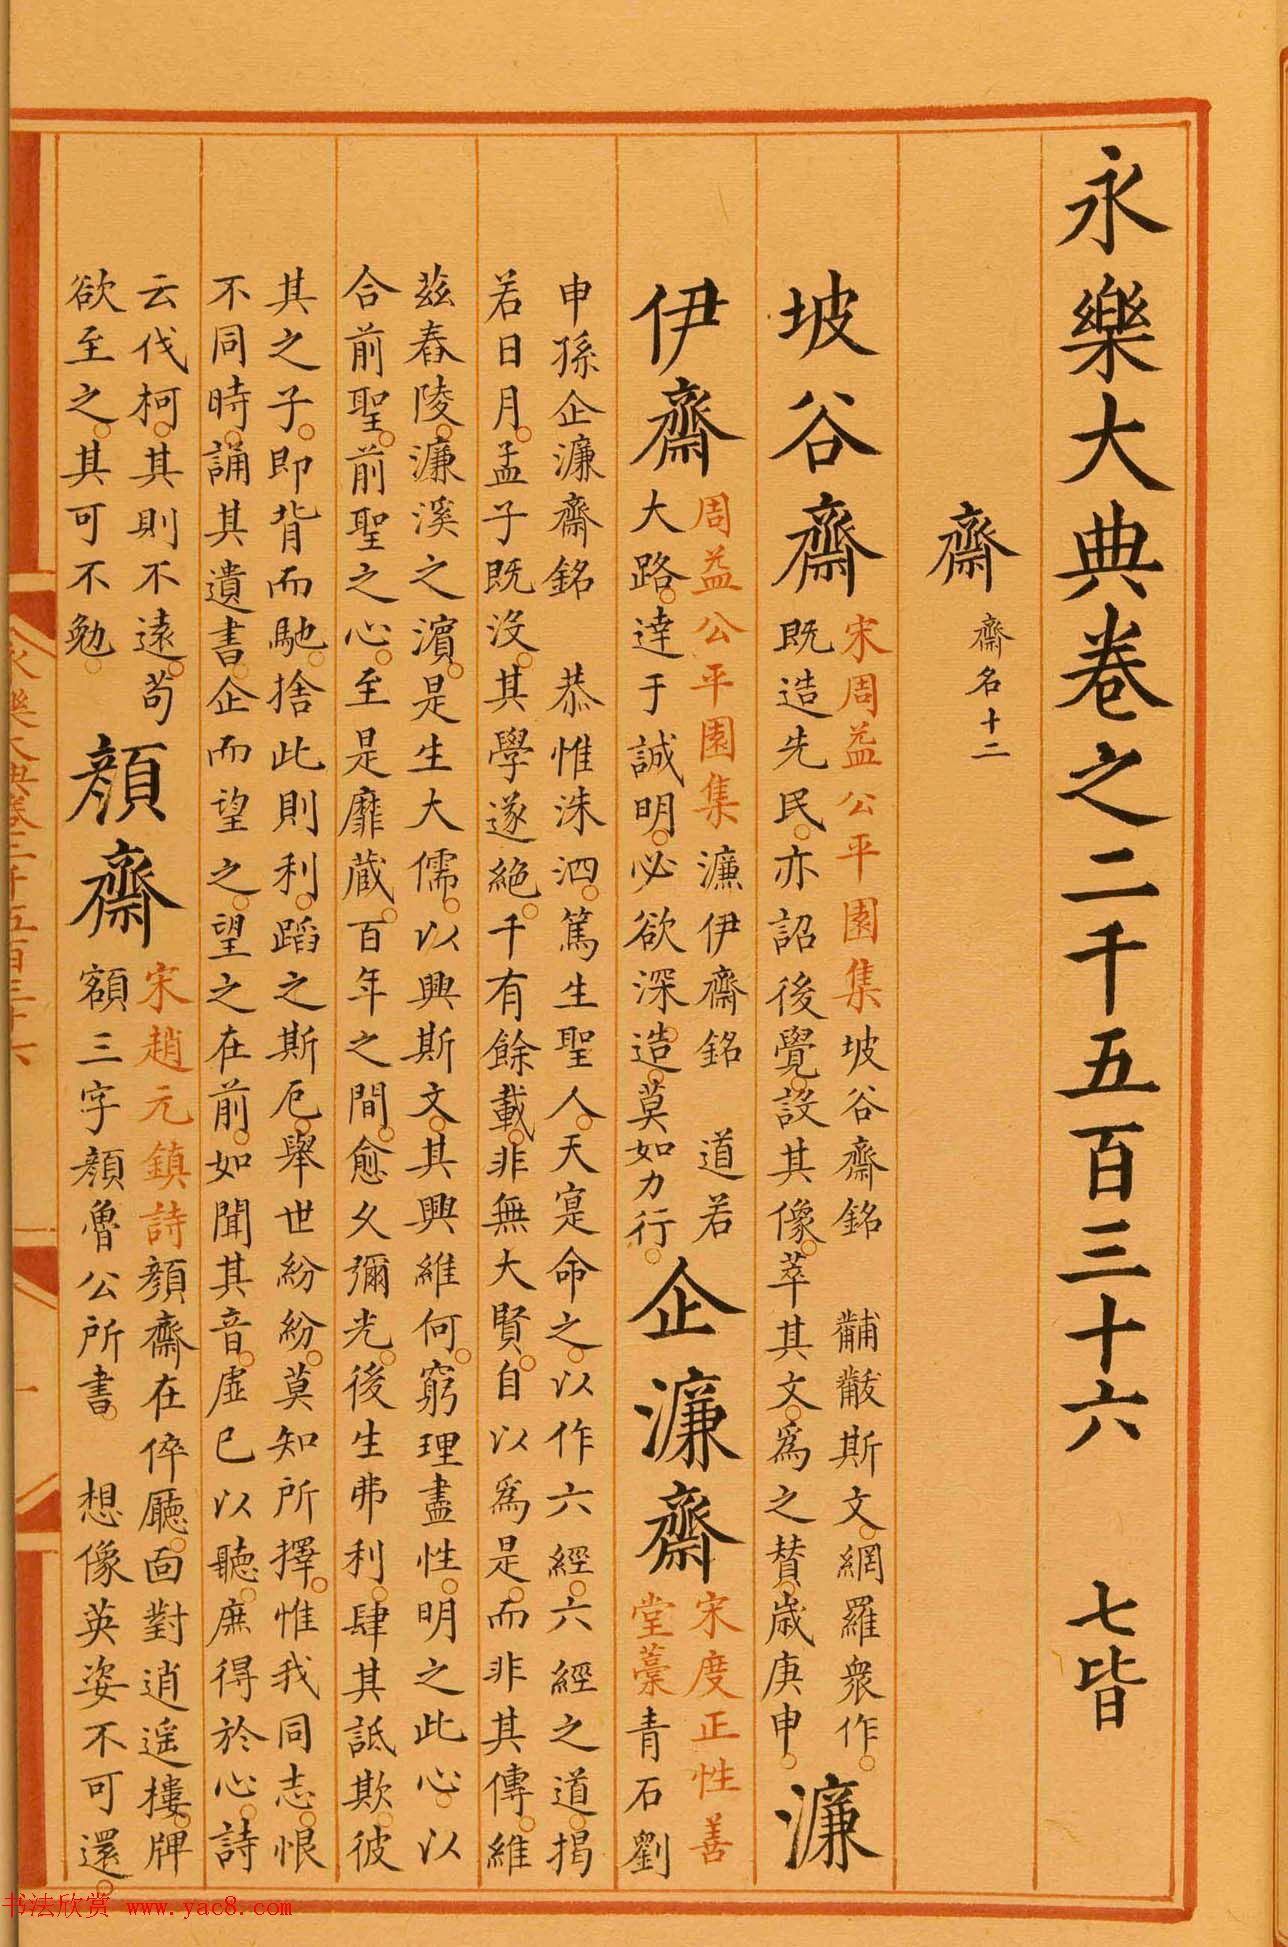 永樂大典卷之二千五百三十六 七皆
齋 齋名十二
坡谷齋 宋周益公平園集坡谷齋銘 黼黻斯文網羅衆作
既造先民亦詔後覺設其像萃其文爲之賛歲庚申 濂
伊齋 周益公平園集 濂伊齋銘 道若
大路達于誠明必欲深造莫如力行 企濂齋 宋度正性善
堂藁青石劉
申孫企濂齋銘 恭惟洙泗篤生聖人天寔命之以作六經六經之道揭
若日月孟子既没其學遂絶千有餘載非無大賢自以爲是而非其傳維
茲舂陵濂溪之濵是生大儒以興斯文其興維何窮理盡性明之此心以
合前聖前聖之心至是靡蔵百年之間愈久彌光後生弗利肆其詆欺彼
其之子即背而馳捨此則利蹈之斯厄舉世紛紛莫知所擇惟我同志恨
不同時誦其遺書企而望之望之在前如聞其音虛已以聽庶得於心詩
云伐柯其則不遠苟
欲至之其可不勉 顔齋 宋趙元鎮詩顔齋在倅廳面對逍遥樓牌
額三字顔魯公所書 想像英姿不可還
永樂大典卷二千五百三十六
一
书法欣赏 www.yac8.com